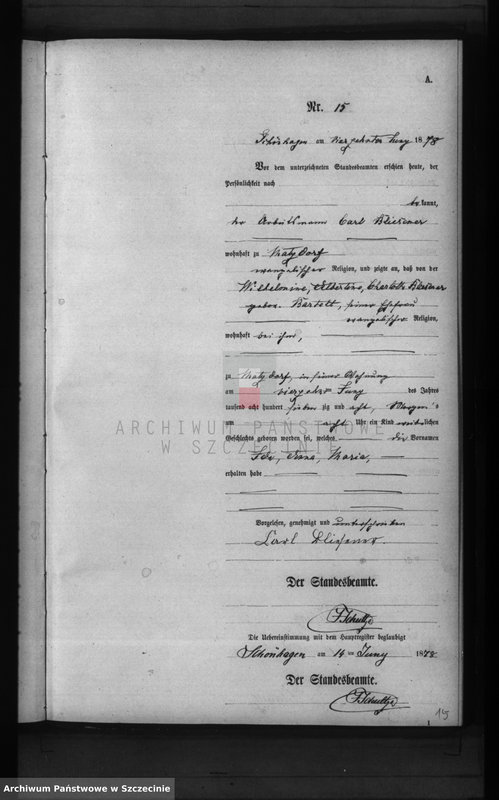 A.
Nr. 15
Schönhagen am vierzehnten Juny 1878
Vor dem unterzeichneten Standesbeamten erschien heute, der
Persönlichkeit nach
bekannt,
der Arbeitsmann Carl Bliesener
wohnhaft zu Matzdorf
evangelischer Religion, und zeigte an, daß von der
Wilhelmine, Albertine, Charlotte Bliesener
geborne Bartelt, seiner Ehefrau
evangelischer Religion,
wohnhaft bei ihm,
zu Matzdorf, in seiner Wohnung
am Juny des Jahres
tausend acht hundert siebenzig und acht, Morgens
um acht Uhr ein Kind weiblichen
Geschlechts geboren worden sei, welches die Vornamen
Ida, Anna, Maria,
erhalten habe
Vorgelesen, genehmigt und unterschrieben
Carl Bliesener.
Der Standesbeamte.
F Schultze
Die Uebereinstimmung mit dem Hauptregister beglaubigt
Schönhagen am 14ten Juny 1878
Der Standesbeamte.
F Schultze
15
ARCHIWUM PAŃSTWOWE
W SZCZECINIE
Archiwum Państwowe w Szczecinie
Archiwum Państwowe w Szczecinie